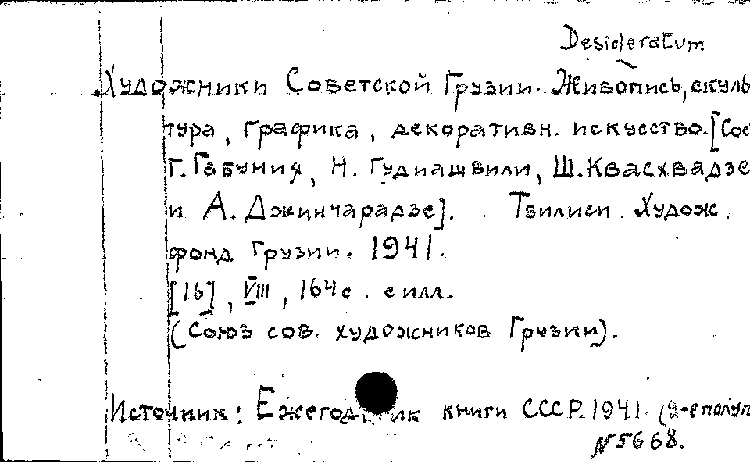 Desideratum
Художники Советской Грузии. Живопись, скуль
тура, графика, декоративн. искусство. [Сос
Г. Габуния, Н. Гудиашвили, Ш. Квасхвадзе
и А. Джинчарадзе]. Тбилиси. Худож.
фонд Грузии. 1941.
[16], VIII, 164 с. с илл.
(Союз сов. художников Грузии).
Источник: Ежегодник книги СССР. 1941. (2-е полуг
№ 5668.